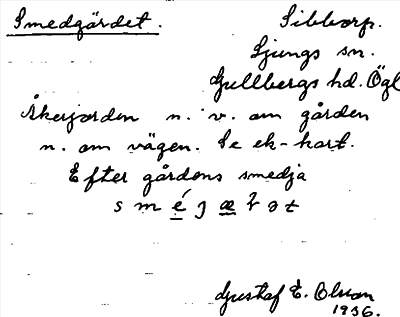 Smedgärdet. Sibborp.
Ljungs sn.
Gullbergs hd. Ögl
Åkerjorden n. v. om gården
n. om vägen. Se ek-kart.
Efter gårdens smedja
Gustaf E. Olsson
1936.